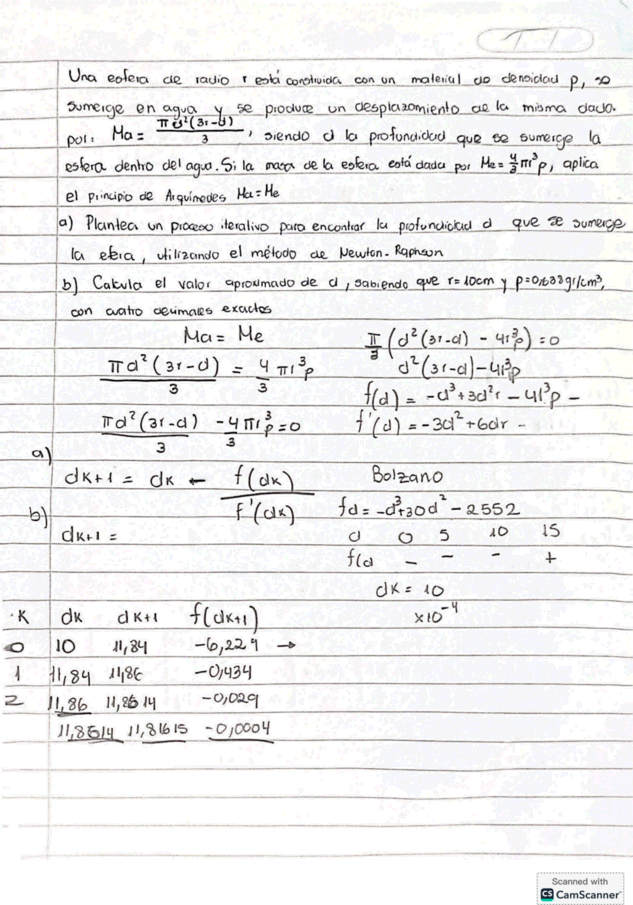 T. 1
Una esfera de radio r está construida con un material de densidad ρ, se
sumerge en agua y se produce un desplazamiento de la misma dado.
por: Ma = πd²(3r-d)/3, siendo d la profundidad que se sumerge la
esfera dentro del agua. Si la masa de la esfera está dada por Me = 4/3 πr³ρ, aplica
el principio de Arquímedes Ma = Me
a) Plantea un proceso iterativo para encontrar la profundidad d que se sumerge
la esfera, utilizando el método de Newton-Raphson
b) Calcula el valor aproximado de d, sabiendo que r = 10cm y ρ = 0,638 gr/cm³,
con cuatro decimales exactos
Ma = Me
πd²(3r-d)/3 = 4/3 πr³ρ
πd²(3r-d)/3 - 4/3 πr³ρ = 0
π/3 (d²(3r-d) - 4r³ρ) = 0
d²(3r-d) - 4r³ρ
f(d) = -d³ + 3d²r - 4r³ρ -
f'(d) = -3d² + 6dr -
a)
dk+1 = dk - f(dk)/f'(dk)
b)
dk+1 =
Bolzano
fd = -d³+30d² - 2552
d 0 5 10 15
f(d - - - +
dk = 10
×10⁻⁴
K dk dk+1 f(dk+1)
0 10 11,84 -6,229 →
1 11,84 11,86 -0,434
2 11,86 11,8614 -0,029
11,8614 11,81615 -0,0004
Scanned with
CS CamScanner